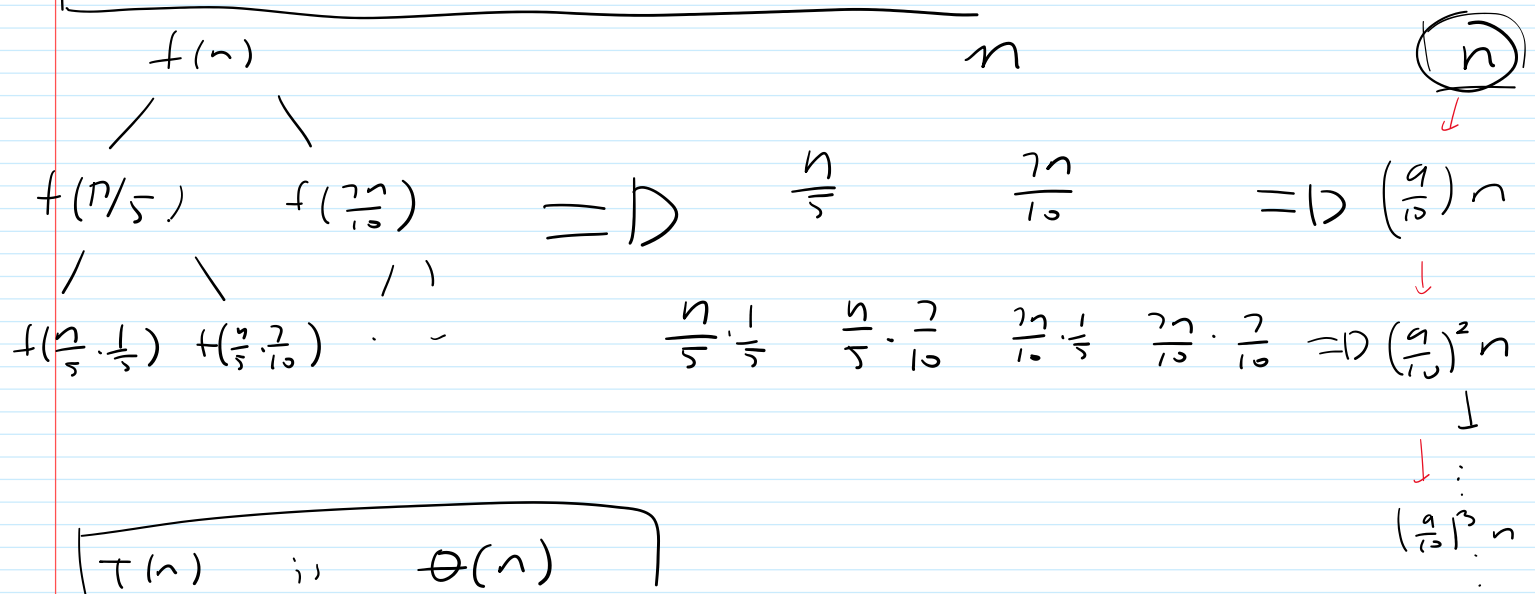 f(n) n n
f(n/5) f(7n/10) => n/5 7n/10 => (9/10) n
f(n/5 · 1/5) f(n/5 · 7/10) . - n/5 · 1/5 n/5 · 7/10 7n/10 · 1/5 7n/10 · 7/10 => (9/10)² n
⋮
(9/10)³ n
T(n) is Θ(n)